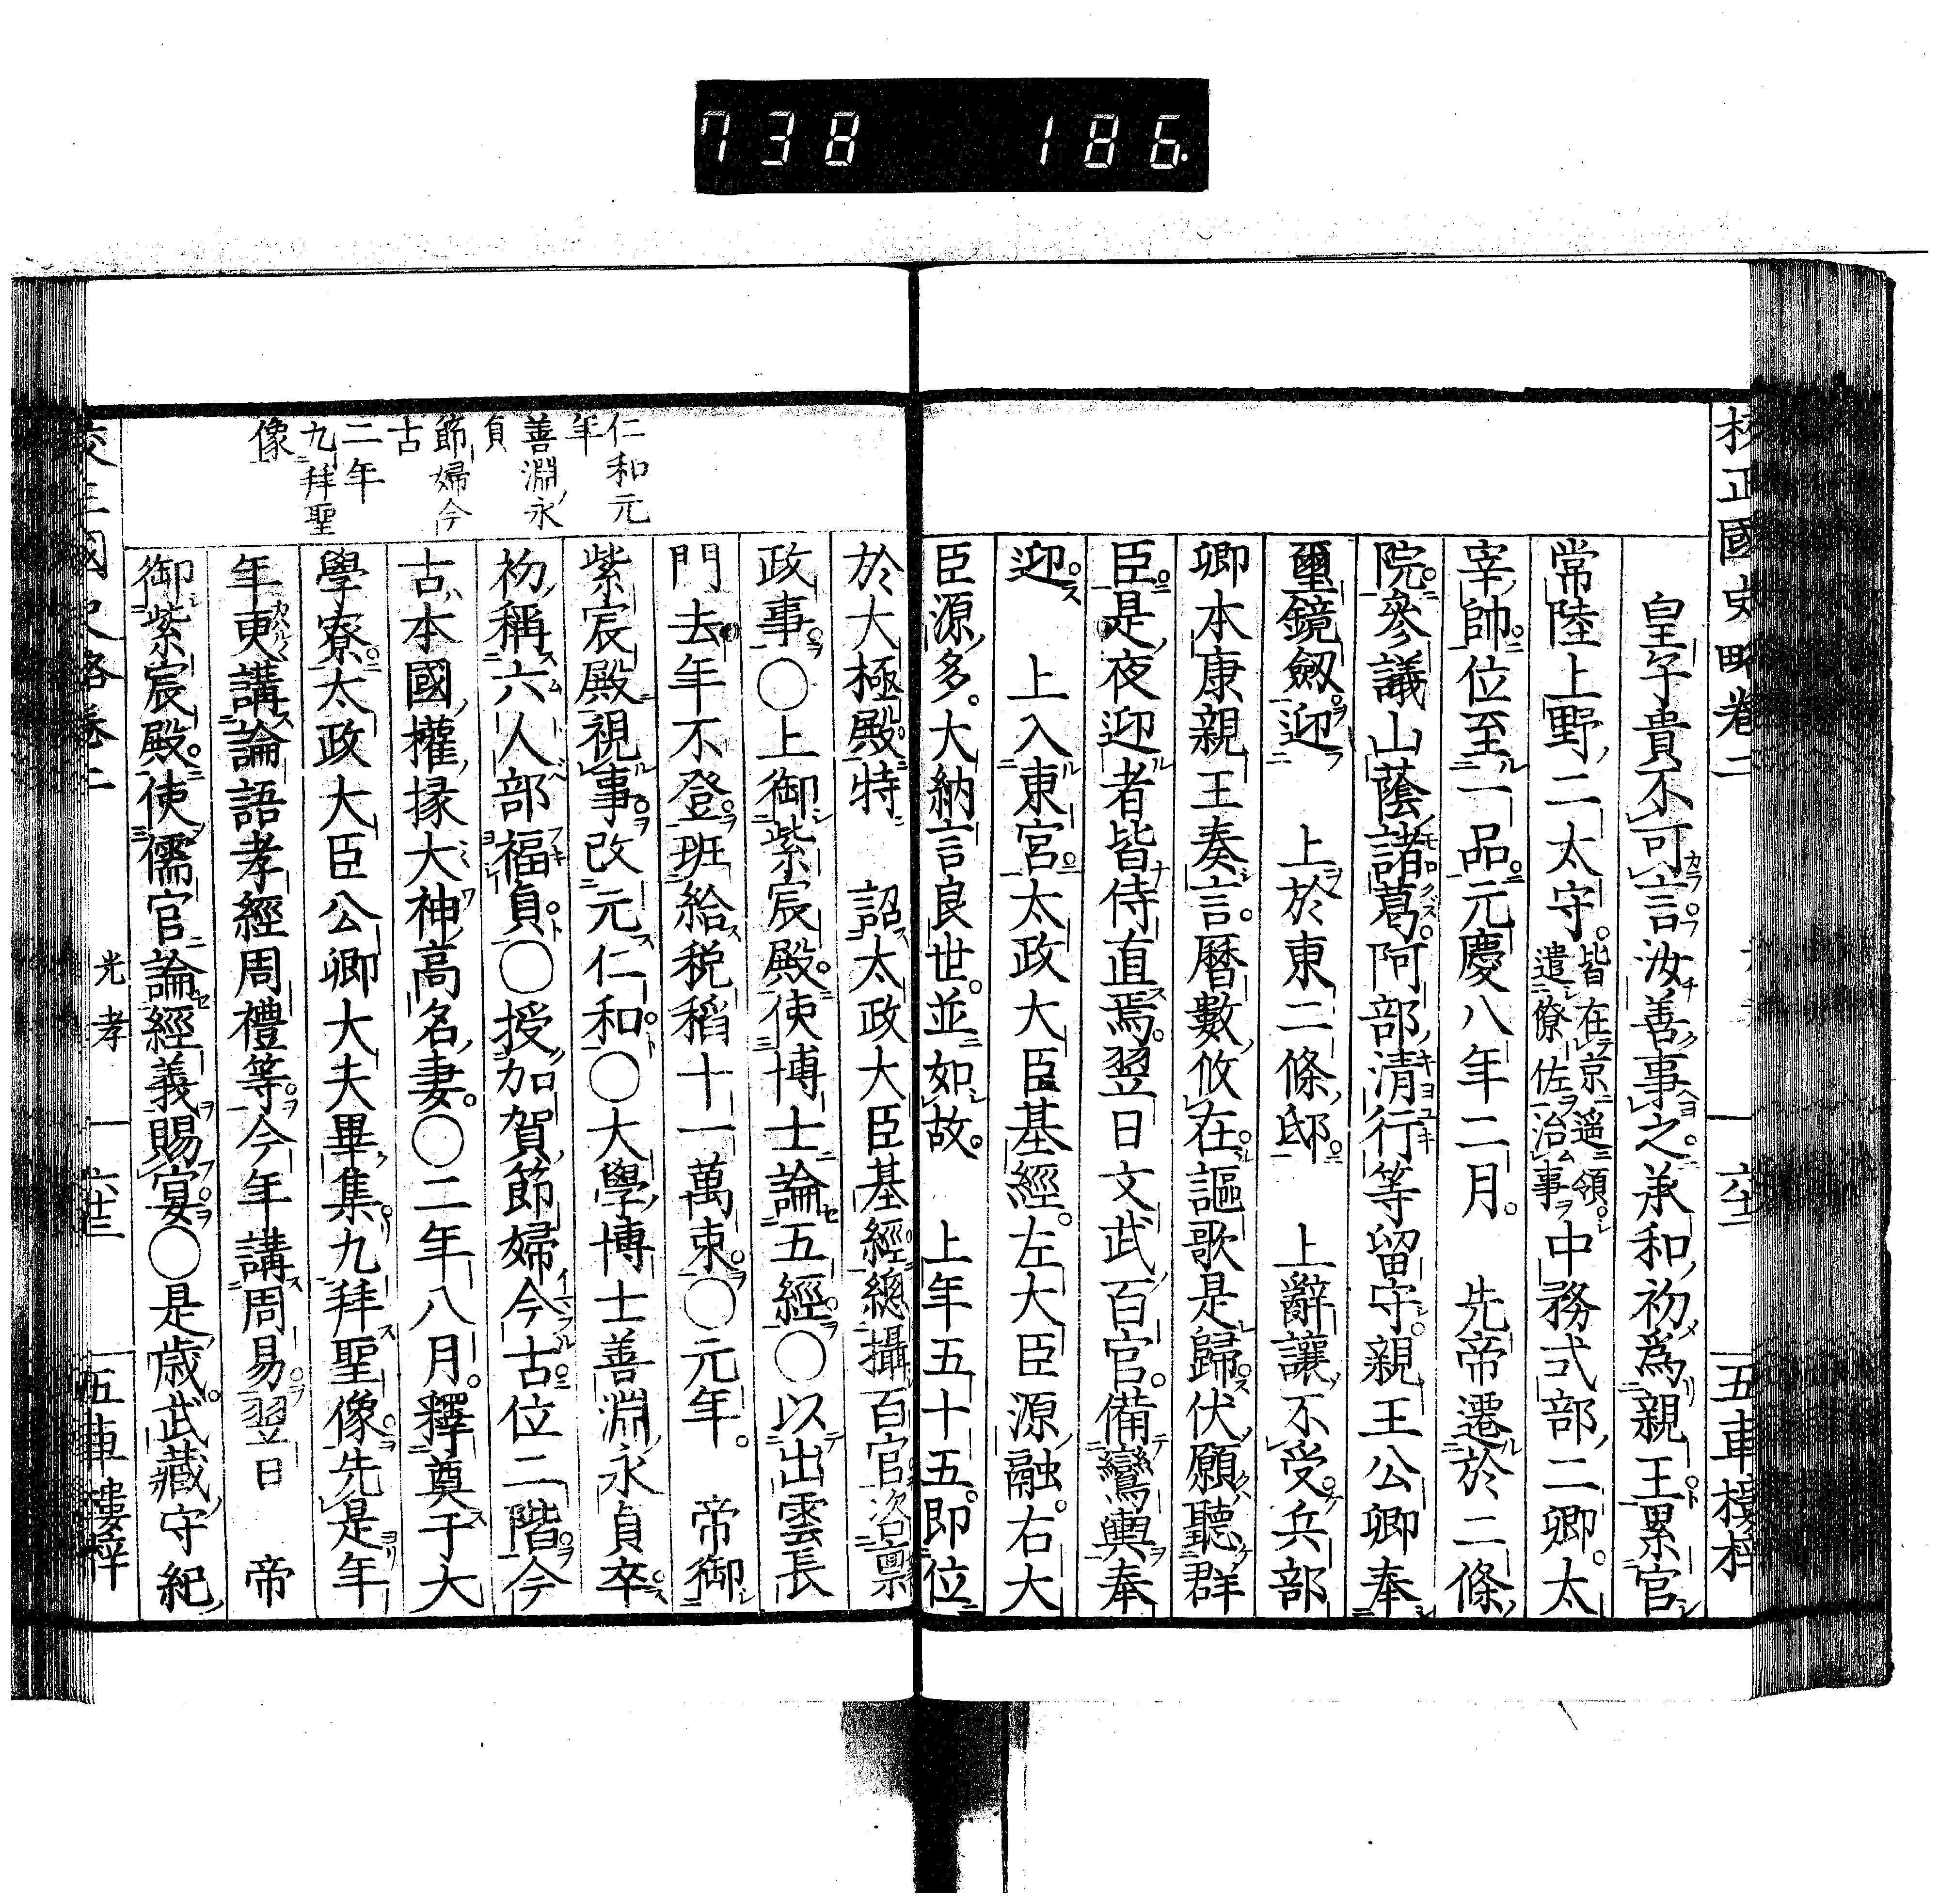 738 186
校正國史略卷二 六十二 五車樓梓
皇子貴不可言汝善事之承和初爲親王累官
常陸上野二太守皆在京遥領遣僚佐治事中務式部二卿太
宰帥位至一品元慶八年二月 先帝遷於二條
院參議山蔭諸葛阿部清行等留守親王公卿奉
璽鏡劔迎 上於東二條邸 上辭讓不受兵部
卿本康親王奏言曆數攸在謳歌是歸伏願聽群
臣是夜迎者皆侍直焉翌日文武百官備鸞輿奉
迎 上入東宮太政大臣基經左大臣源融右大
臣源多大納言良世並如故 上年五十五即位
於大極殿特 詔太政大臣基經總攝百官咨稟
政事〇上御紫宸殿使博士論五經〇以出雲長
門去年不登班給税稻十一萬束〇元年 帝御
紫宸殿視事改元仁和〇大學博士善淵永貞卒
初稱六人部福貞〇授加賀節婦今古位二階今
古本國權掾大神高名妻〇二年八月釋奠于大
學寮太政大臣公卿大夫畢集九拜聖像先是年
年更講論語孝經周禮等今年講周易翌日 帝
御紫宸殿使儒官論經義賜宴〇是歲武藏守紀
仁和元
年
善淵永
貞
節婦今
古
二年
九拜聖
像
光孝 六十三 五車樓梓